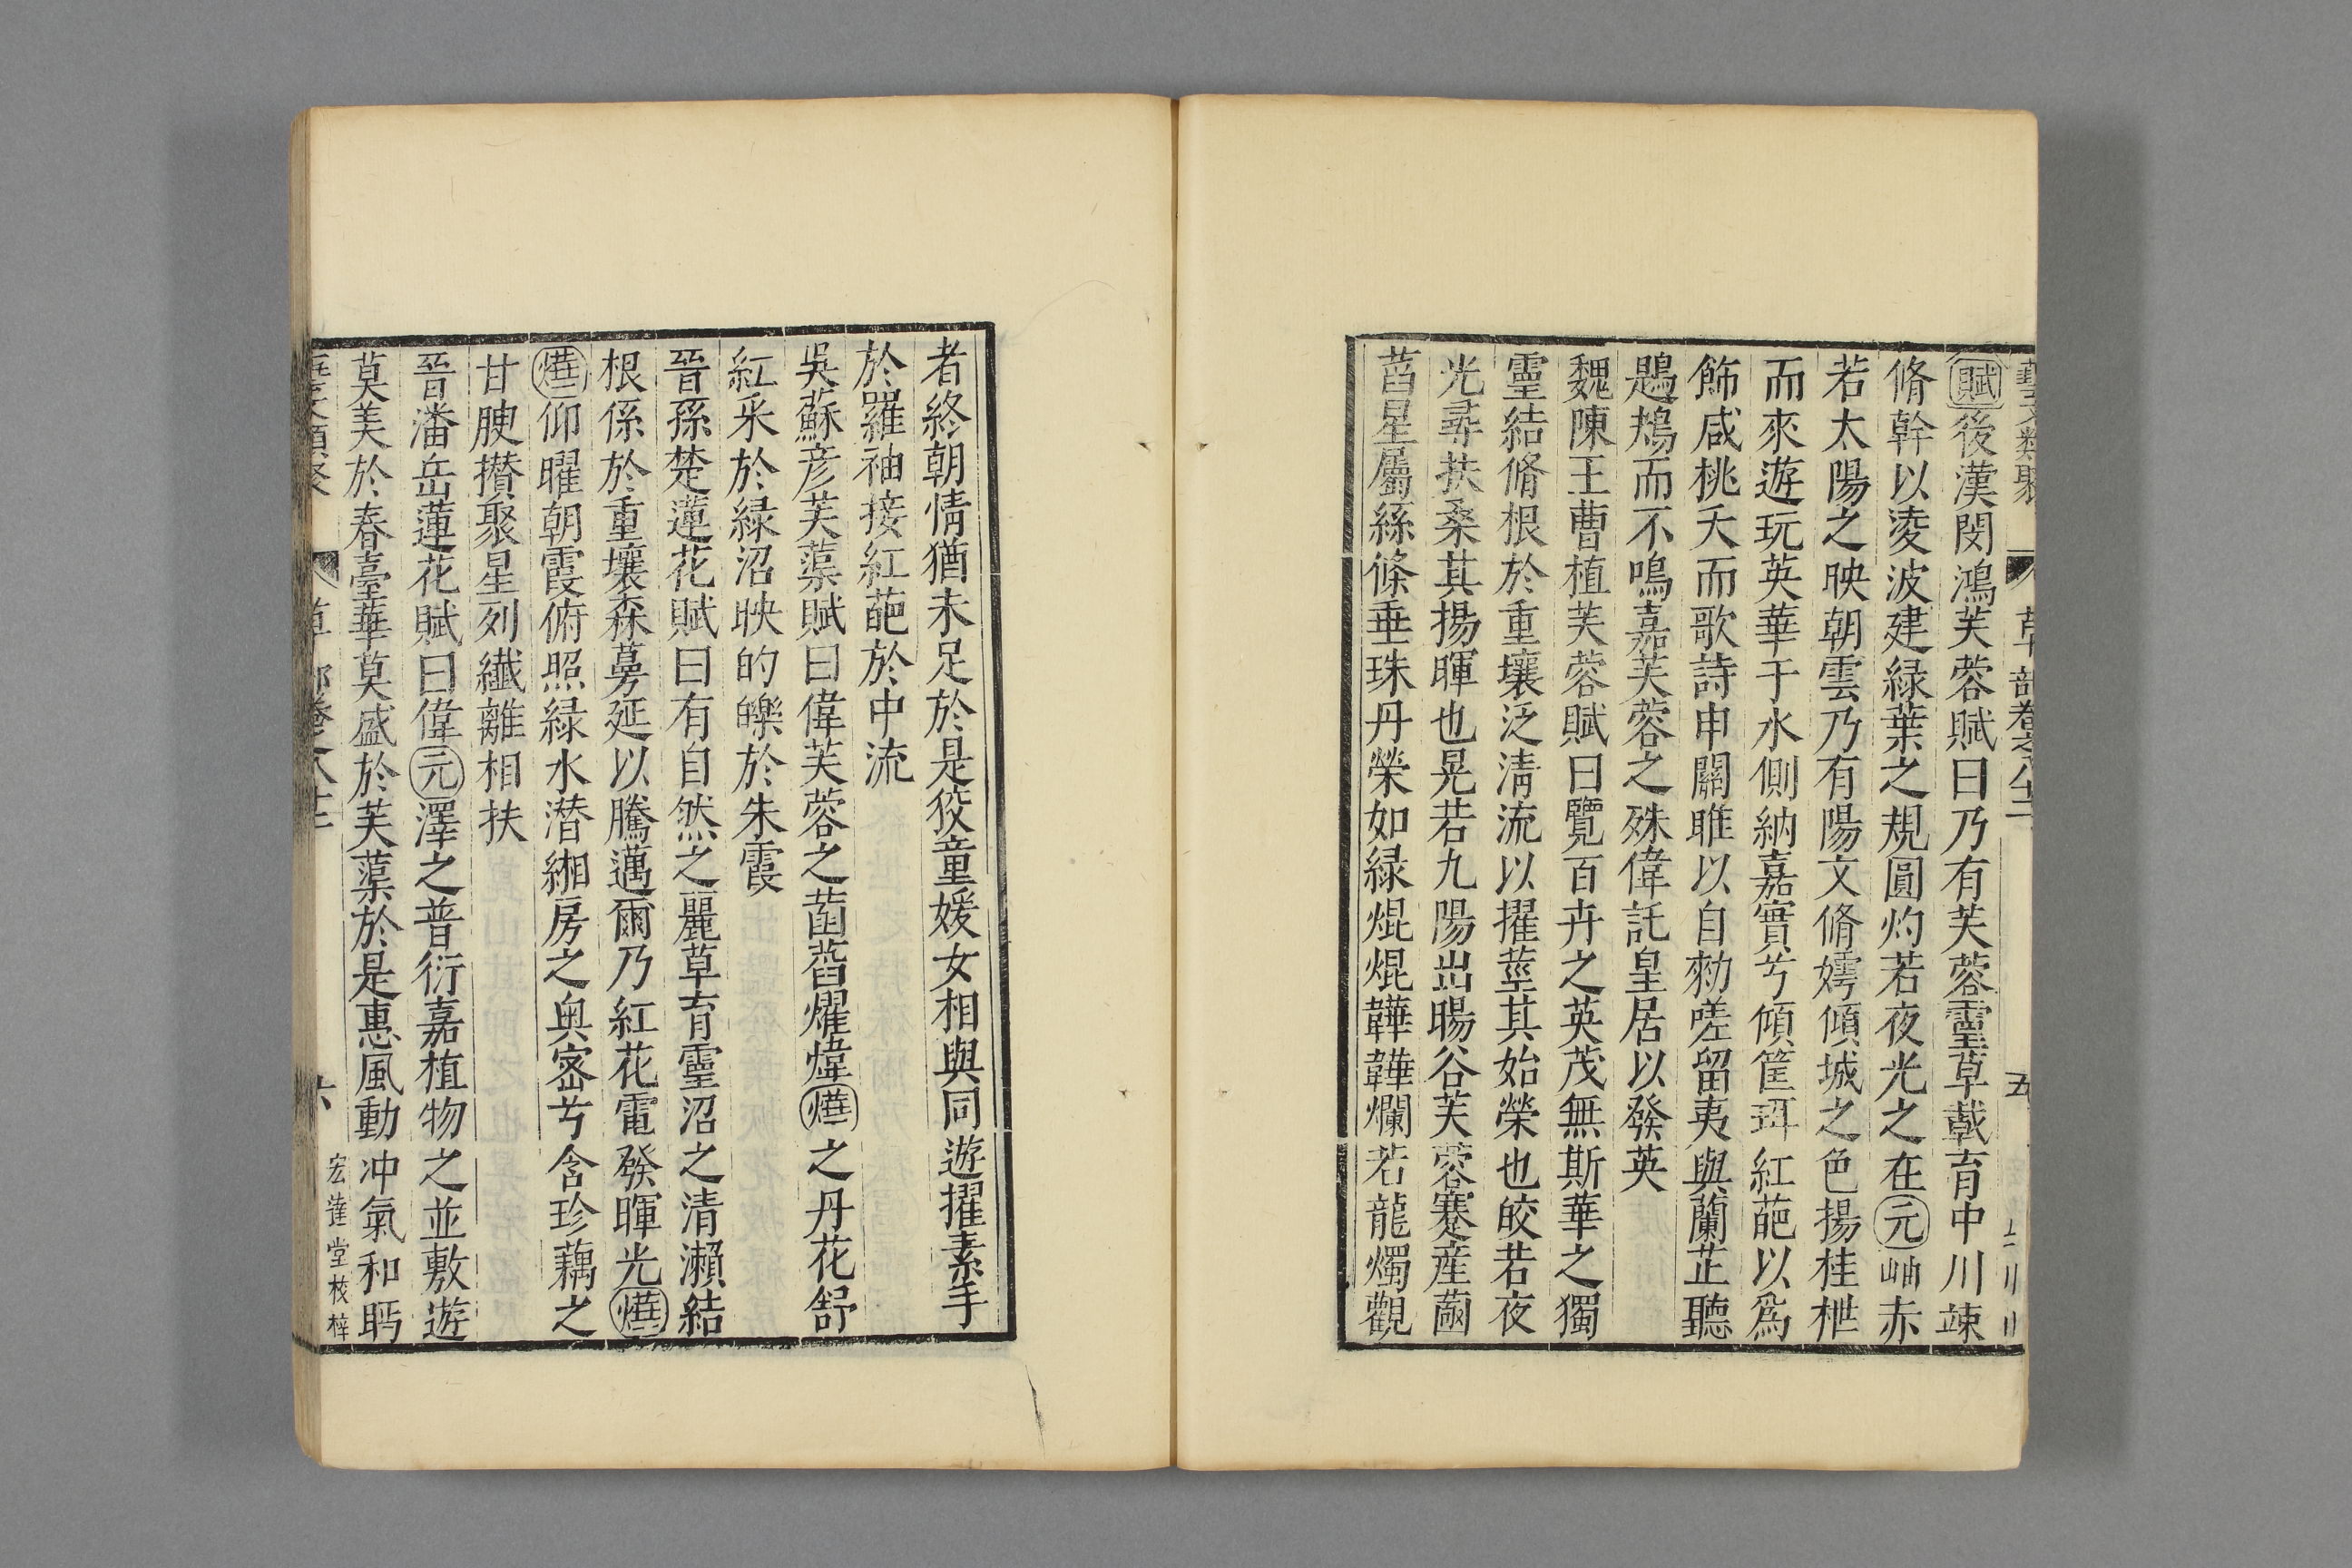 藝文類聚 草部卷之八十二 五
賦後漢閔鴻芙蓉賦曰乃有芙蓉靈草載育中川竦
脩幹以凌波建緑葉之規圓灼若夜光之在元岫赤
若太陽之映朝雲乃有陽文脩嫮傾城之色揚桂枻
而來遊玩英華于水側納嘉實兮傾筐珥紅葩以爲
飾咸桃夭而歌詩申關雎以自勑嗟留夷與蘭芷聽
鶗鴂而不鳴嘉芙蓉之殊偉託皇居以發英
魏陳王曹植芙蓉賦曰覽百卉之英茂無斯華之獨
靈結脩根於重壤泛清流以擢莖其始榮也皎若夜
光尋扶桑其揚暉也晃若九陽出暘谷芙蓉蹇産菡
萏星屬絲條垂珠丹榮如緑焜焜韡韡爛若龍燭觀
者終朝情猶未足於是狡童媛女相與同遊擢素手
於羅袖接紅葩於中流
吳蘇彦芙蕖賦曰偉芙蓉之菡萏燿煒燁之丹花舒
紅采於緑沼映的皪於朱霞
晉孫楚蓮花賦曰有自然之麗草育靈沼之清瀨結
根係於重壤森蔓延以騰邁爾乃紅花電發暉光燁
燁仰曜朝霞俯照緑水潜緗房之奥宻兮含珍藕之
甘腴攢聚星列纖離相扶
晉潘岳蓮花賦曰偉元澤之普衍嘉植物之並敷遊
莫美於春臺華莫盛於芙蕖於是惠風動冲氣和眄
藝文類聚 草部卷八十二 六 宏達堂校梓